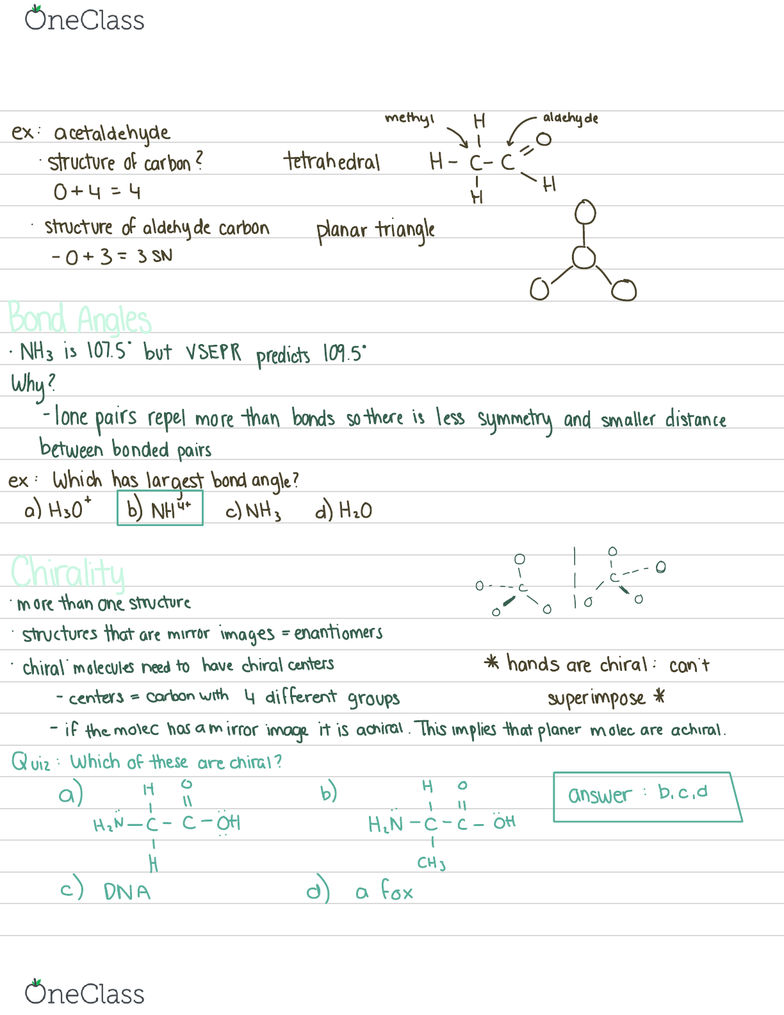 OneClass
ex: acetaldehyde
· structure of carbon? tetrahedral
0+4 = 4
methyl H aldehyde
O
H - C - C
H H
· structure of aldehyde carbon planar triangle
- 0+3 = 3 SN
Bond Angles
· NH3 is 107.5° but VSEPR predicts 109.5°
Why?
- lone pairs repel more than bonds so there is less symmetry and smaller distance
between bonded pairs
ex: Which has largest bond angle?
a) H3O+ b) NH4+ c) NH3 d) H2O
Chirality
O O
O C C O
O O O O
· more than one structure
· structures that are mirror images = enantiomers
· chiral molecules need to have chiral centers
* hands are chiral: can't
superimpose *
- centers = carbon with 4 different groups
- if the molec has a mirror image it is achiral. This implies that planer molec are achiral.
Quiz: Which of these are chiral?
a) H O
H2N - C - C - ÖH
H
b) H O
H2N - C - C - ÖH
CH3
answer: b,c,d
c) DNA d) a fox
OneClass